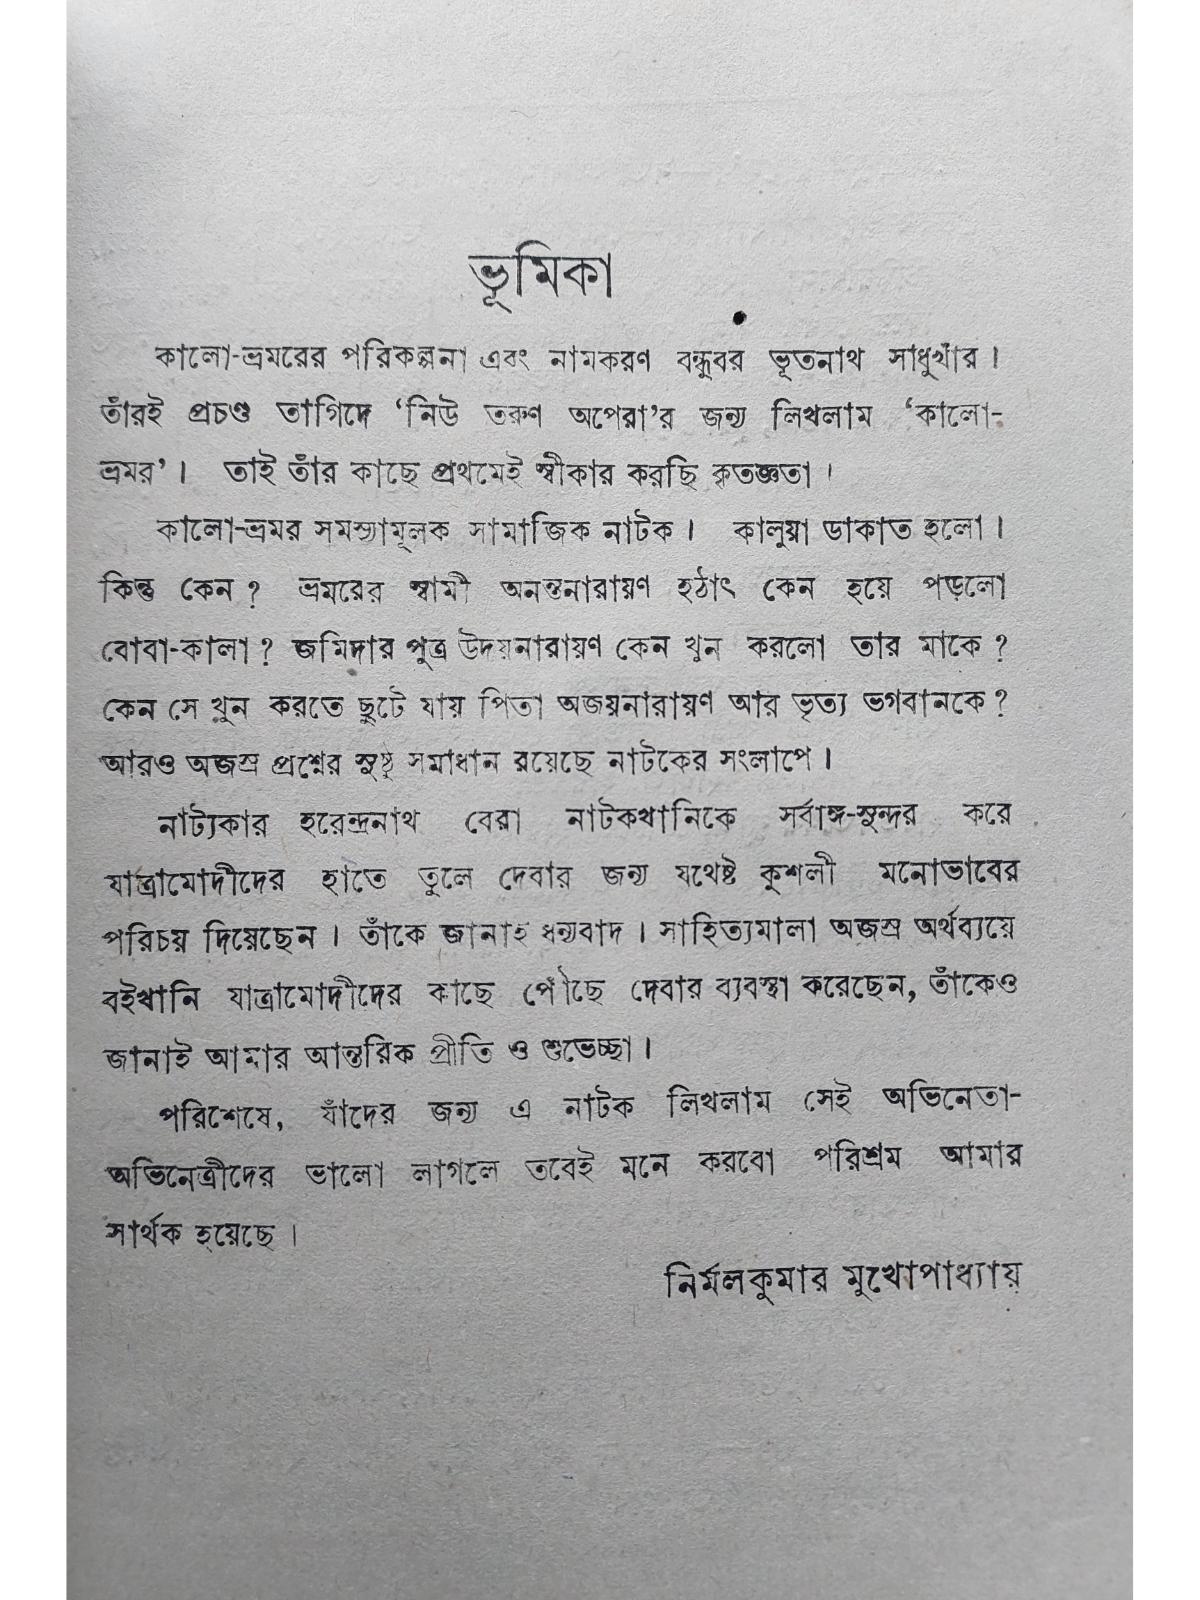 ভূমিকা
কালো-ভ্রমরের পরিকল্পনা এবং নামকরণ বন্ধুবর ভূতনাথ সাধুখাঁর।
তাঁরই প্রচণ্ড তাগিদে ‘নিউ তরুণ অপেরা’র জন্য লিখলাম ‘কালো-
ভ্রমর’। তাই তাঁর কাছে প্রথমেই স্বীকার করছি কৃতজ্ঞতা।
কালো-ভ্রমর সমস্যামূলক সামাজিক নাটক। কালুয়া ডাকাত হলো।
কিন্তু কেন? ভ্রমরের স্বামী অনন্তনারায়ণ হঠাৎ কেন হয়ে পড়লো
বোবা-কালা? জমিদার পুত্র উদয়নারায়ণ কেন খুন করলো তার মাকে?
কেন সে খুন করতে ছুটে যায় পিতা অজয়নারায়ণ আর ভৃত্য ভগবানকে?
আরও অজস্র প্রশ্নের সুষ্ঠু সমাধান রয়েছে নাটকের সংলাপে।
নাট্যকার হরেন্দ্রনাথ বেরা নাটকখানিকে সর্বাঙ্গ-সুন্দর করে
যাত্রামোদীদের হাতে তুলে দেবার জন্য যথেষ্ট কুশলী মনোভাবের
পরিচয় দিয়েছেন। তাঁকে জানাই ধন্যবাদ। সাহিত্যমালা অজস্র অর্থব্যয়ে
বইখানি যাত্রামোদীদের কাছে পৌঁছে দেবার ব্যবস্থা করেছেন, তাঁকেও
জানাই আমার আন্তরিক প্রীতি ও শুভেচ্ছা।
পরিশেষে, যাঁদের জন্য এ নাটক লিখলাম সেই অভিনেতা-
অভিনেত্রীদের ভালো লাগলে তবেই মনে করবো পরিশ্রম আমার
সার্থক হয়েছে।
নির্মলকুমার মুখোপাধ্যায়